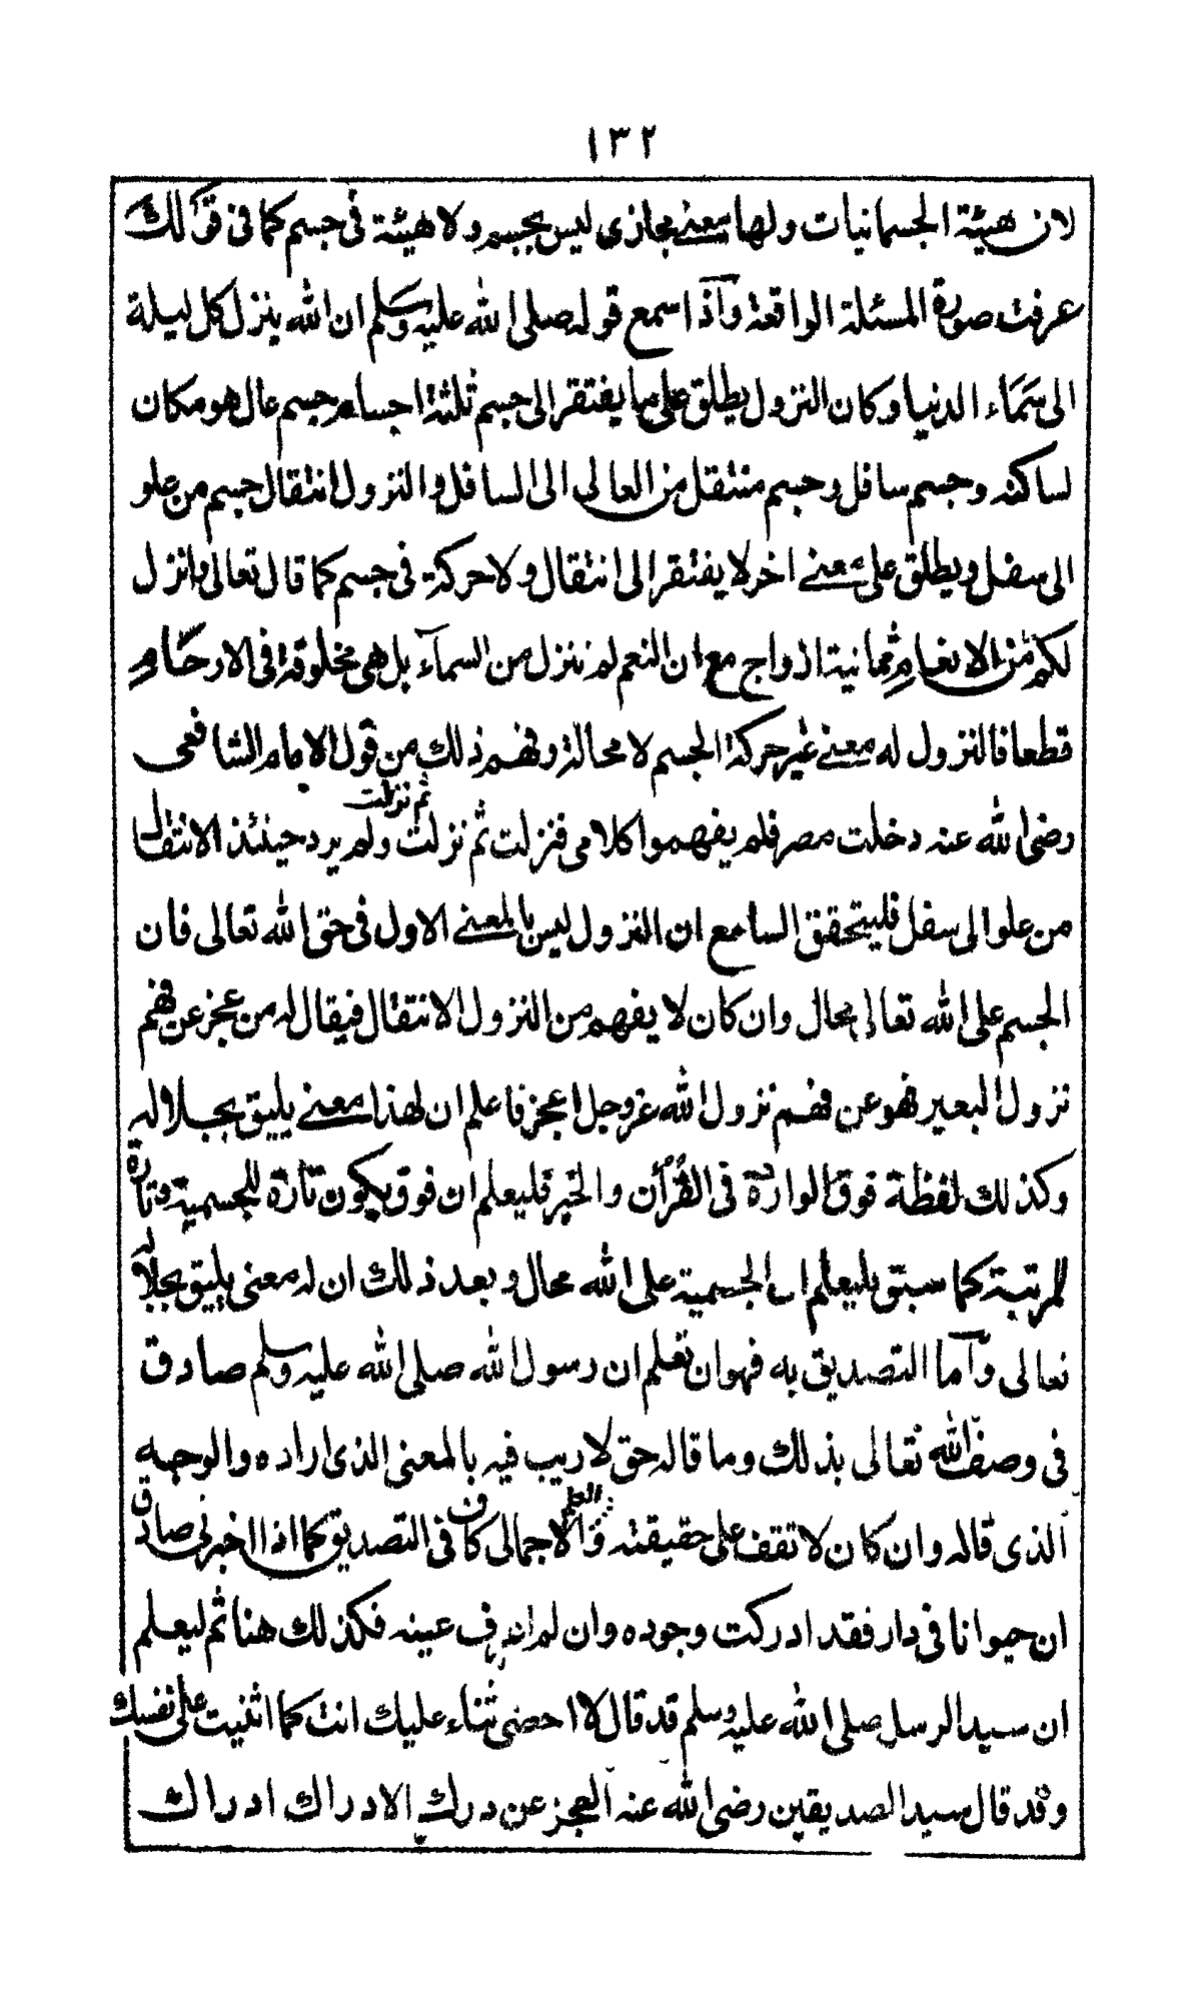 ١٣٢
لان هيئة الجسمانيات ولها معنى مجازى ليس بجسم ولا هيئة فى جسم كما فى قولك
عرفت صورة المسئلة الواقعة وآذا سمع قوله صلى الله عليه وسلم ان الله ينزل كل ليلة
الى سَمَاء الدنيا وكان النزول يطلق على ما يفتقر الى جسم ثلثة اجسام جسم عال هو مكان
لساكنه وجسم سافل وجسم منتقل من العالى الى السافل والنزول انتقال جسم من علو
الى سفل ويطلق على معنى اخر لا يفتقر الى انتقال ولا حركة فى جسم كما قال تعالى وانزل
لكم من الانعام ثمانية ازواج مع ان النعم لم ينزل من السمآء بل هى مخلوقة فى الارحام
قطعا فالنزول له معنى غير حركة الجسم لا محالة وفهم ذلك من قول الامام الشافعى
رضى الله عنه دخلت مصر فلم يفهموا كلامى فنزلت ثم نزلت ثم نزلت ولم يرد حينئذ الانتقال
من علو الى سفل فليتحقق السامع ان النزول ليس بالمعنى الاول فى حق الله تعالى فان
الجسم على الله تعالى محال وان كان لا يفهم من النزول الانتقال فيقال له من عجز عن فهم
نزول البعير فهو عن فهم نزول الله عز وجل اعجز فاعلم ان لهذا معنى يليق بجلاله
وكذلك لفظة فوق الواردة فى القرآن والخبر فليعلم ان فوق يكون تارة للجسمية وتارة
للمرتبة كما سبق فليعلم ان الجسمية على الله محال وبعد ذلك ان له معنى يليق بجلاله
تعالى وآما التصديق به فهو ان تعلم ان رسول الله صلى الله عليه وسلم صادق
فى وصف الله تعالى بذلك وما قاله حق لا ريب فيه بالمعنى الذى اراده والوجه
الذى قاله وان كان لا تقف على حقيقته والعلم الاجمالى كاف فى التصديق كما اذا اخبرنى صادق
ان حيوانا فى دار فقد ادركت وجوده وان لم اعرف عينه فكذلك هنا ثم ليعلم
ان سيد الرسل صلى الله عليه وسلم قد قال لا احصى ثناء عليك انت كما اثنيت على نفسك
وقد قال سيد الصديقين رضى الله عنه العجز عن درك الادراك ادراك